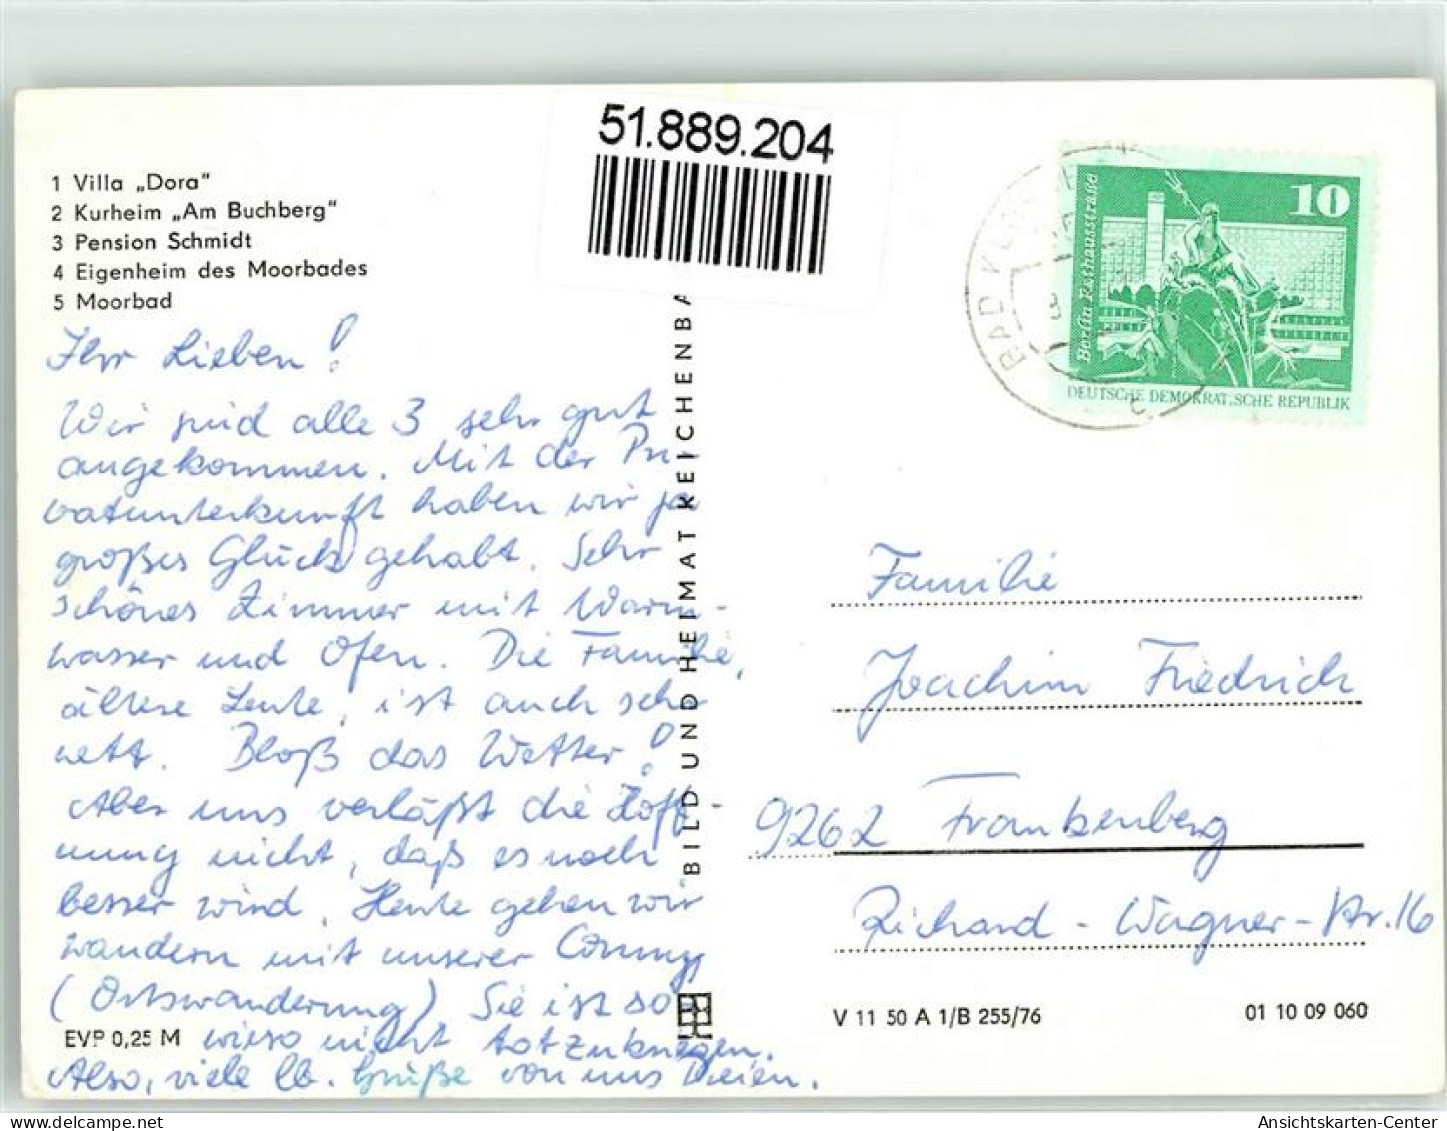 51.889.204
1 Villa „Dora"
2 Kurheim „Am Buchberg"
3 Pension Schmidt
4 Eigenheim des Moorbades
5 Moorbad
Ihr Lieben!
Wir sind alle 3 sehr gut
angekommen. Mit der Pri-
vatunterkunft haben wir ja
großes Glück gehabt. Sehr
schönes Zimmer mit Warm-
wasser und Ofen. Die Familie,
ältere Leute, ist auch sehr
nett. Bloß das Wetter!
Aber uns verläßt die Hoff-
nung nicht, daß es noch
besser wird. Heute gehen wir
wandern mit unserer
(Ortswanderung) Sie ist so-
wieso nicht totzukriegen.
Also, viele lb. Grüße von uns Dreien.
EVP 0,25 M
BILD UND HEIMAT REICHENBA
BAD KL
10
Berlin Rathausstraße
DEUTSCHE DEMOKRATISCHE REPUBLIK
Familie
Joachim Friedrich
9262 Frankenberg
Richard-Wagner-Str. 16
V 11 50 A 1/B 255/76
01 10 09 060
delcampe.net
Ansichtskarten-Center